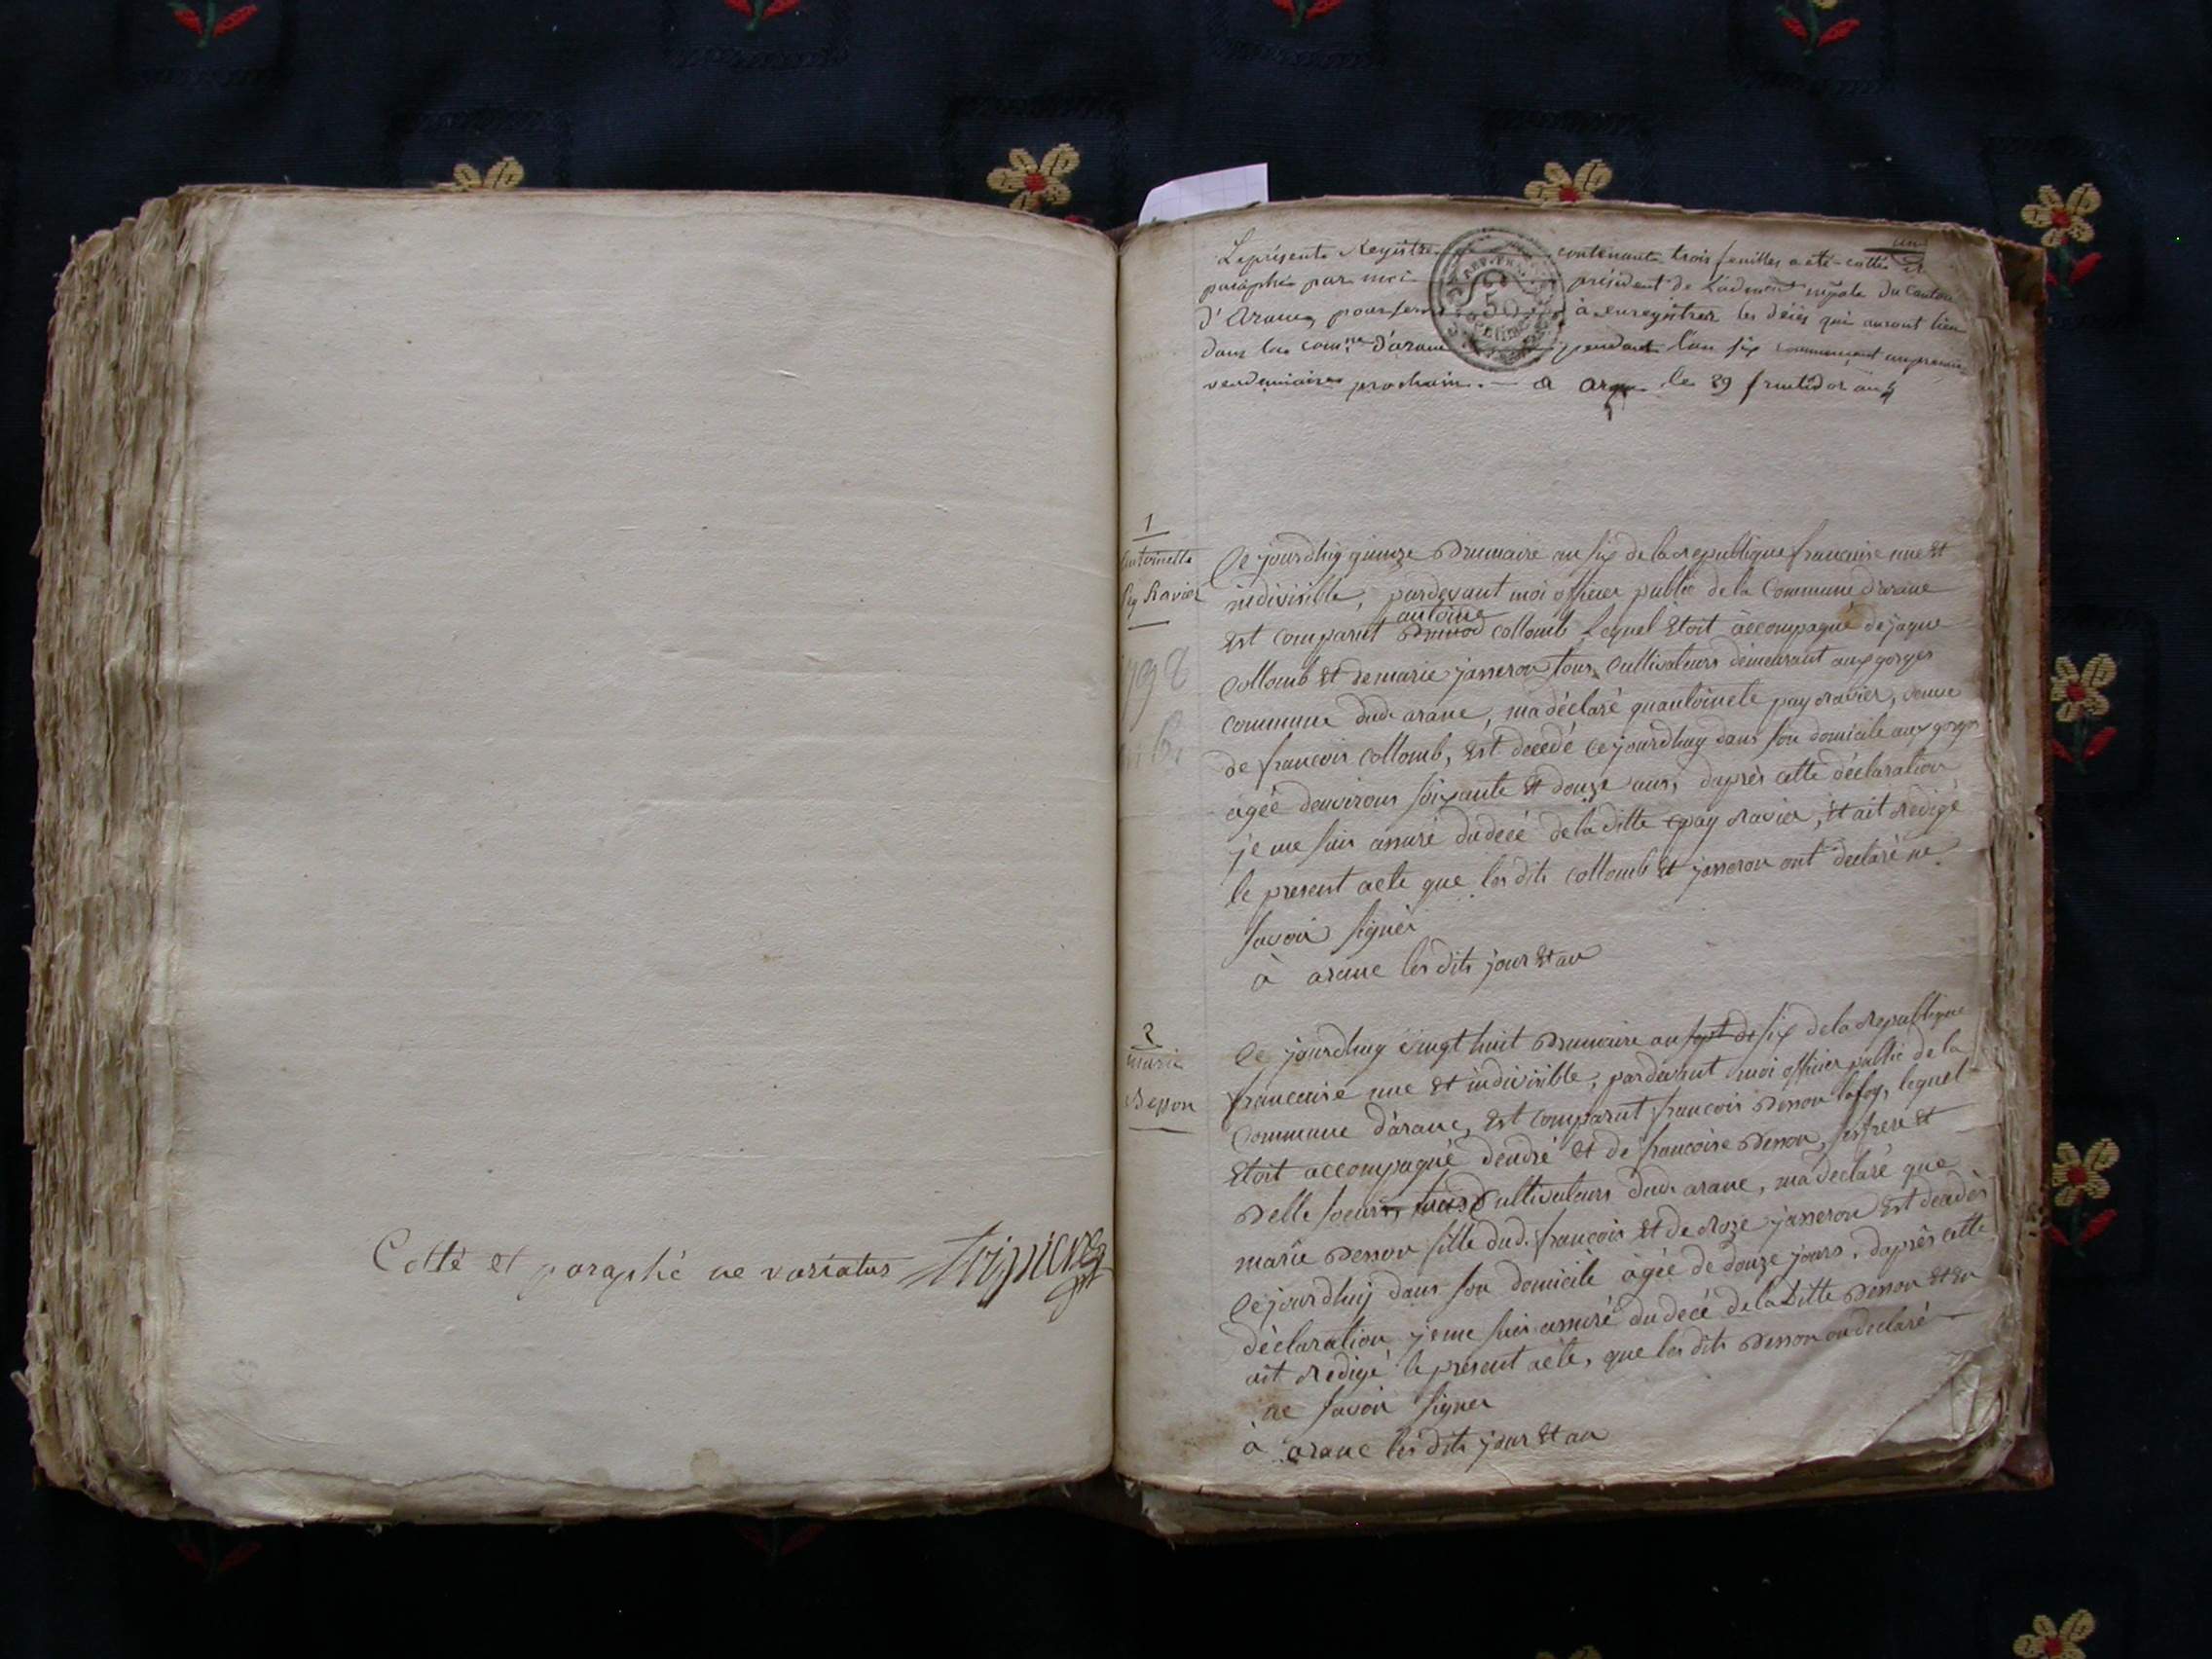 Cotté et paraphé ne varietur
un
Le présente Registre contenant trois feuilles a été cotté et
paraphé par moi président de l'admōn mpale du Canton
d'Aranc, pour servir à enregistrer les décès qui auront lieu
dans la comne d'aranc pendant l'an six commençant au premier
vendemiaire prochain. — a le 29 fructidor an 5
REP. FRA.
50
CENT
1
antoinette
pey Ravier
1798
Ce jourdhuy quinze Brumaire an six de la republique francaise une et
indivisible, pardevant moi officier public de la Commune d'aranc
antoine
est comparut collomb Lequel étoit accompagné de jaque
Collomb et de marie jasseron tous cultivateurs demeurant aux gorges
commune dud. aranc, ma déclaré quantoinete pay ravier, veuve
de francois Collomb, est decedé ce jourdhuy dans son domicile aux gorges
agée denvirons soixante et douze ans, daprès cette déclaration
je me suis assuré du decé de la ditte pay ravier, et ait redigé
le present acte que les dits collomb et jasseron ont declaré ne
savoir signer
à aranc les dits jour et an
2
marie
Besson
Ce jourdhuy vingt huit Brumaire an sept de six de la Republique
francaise une et indivisible, pardevant moi officier public de la
Commune d'aranc, est comparut francois Besson lequel
étoit accompagné dendré et de francoise Besson, ses frere et
Belle soeur, tous Cultivateurs dud. aranc, ma declaré que
marie Besson fille dud. francois et de Roze jasseron est decedés
Ce jourdhuy dans son domicile agée de douze jours, daprès cette
déclaration je me suis assuré du decé de la ditte Besson et en
ait redigé le présent acte, que les dits Besson on declaré
ne savoir signer
à aranc les dits jour et an